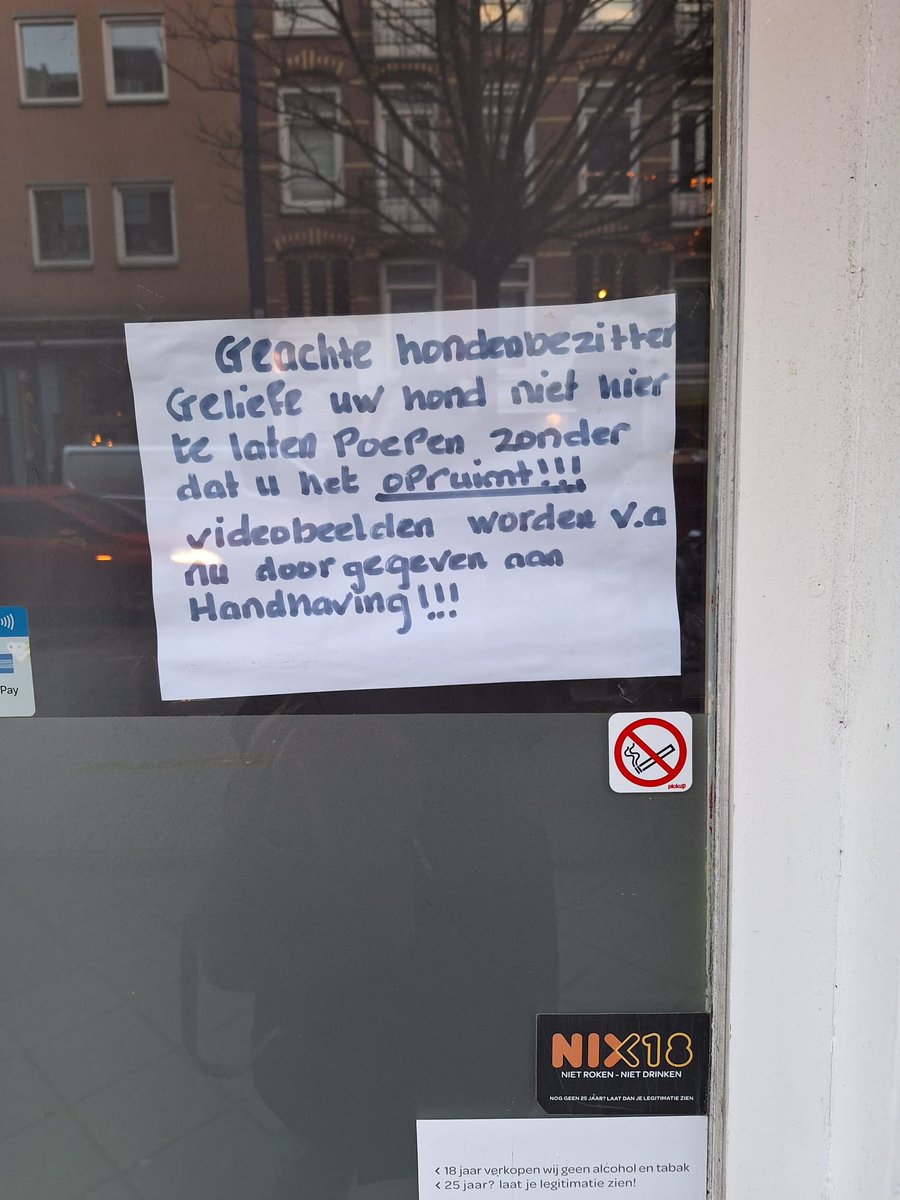 Geachte hondenbezitter
Geliefe uw hond niet hier
te laten Poepen zonder
dat u het opruimt!!!
videobeelden worden v.a
nu doorgegeven aan
Handhaving!!!
Pay
pickup
NIX18
NIET ROKEN - NIET DRINKEN
NOG GEEN 25 JAAR? LAAT DAN JE LEGITIMATIE ZIEN
< 18 jaar verkopen wij geen alcohol en tabak
< 25 jaar? laat je legitimatie zien!